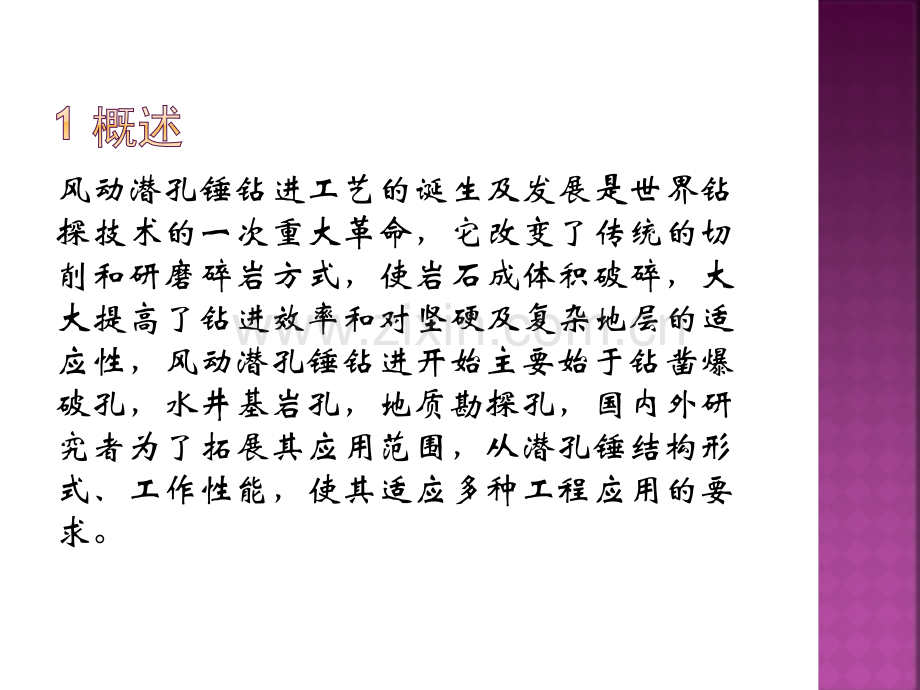 1 概述
风动潜孔锤钻进工艺的诞生及发展是世界钻
探技术的一次重大革命，它改变了传统的切
削和研磨碎岩方式，使岩石成体积破碎，大
大提高了钻进效率和对坚硬及复杂地层的适
应性，风动潜孔锤钻进开始主要始于钻凿爆
破孔，水井基岩孔，地质勘探孔，国内外研
究者为了拓展其应用范围，从潜孔锤结构形
式、工作性能，使其适应多种工程应用的要
求。
www.zixin.com.cn